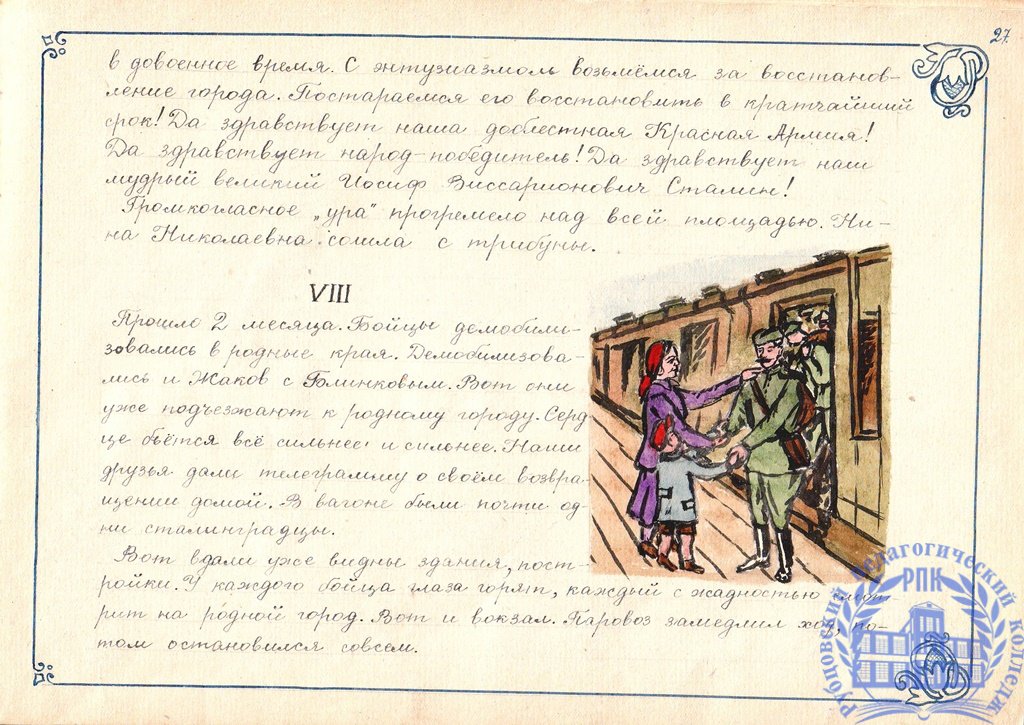 27.
в довоенное время. С энтузиазмом возьмёмся за восстанов-
ление города. Постараемся его восстановить в кратчайший
срок! Да здравствует наша доблестная Красная Армия!
Да здравствует народ-победитель! Да здравствует наш
мудрый великий Иосиф Виссарионович Сталин!
Громкогласное „ура“ прогремело над всей площадью. Ни-
на Николаевна сошла с трибуны.
VIII
Прошло 2 месяца. Бойцы демобили-
зовались в родные края. Демобилизова-
лись и Жаков с Блинковым. Вот они
уже подъезжают к родному городу. Серд
це бьётся всё сильнее и сильнее. Наши
друзья дали телеграмму о своём возвра-
щении домой. В вагоне были почти од-
ни сталинградцы.
Вот вдали уже видны здания, пост-
ройки. У каждого бойца глаза горят, каждый с жадностью смот-
рит на родной город. Вот и вокзал. Паровоз замедлил ход, по-
том остановился совсем.
РУБЦОВСКИЙ ПЕДАГОГИЧЕСКИЙ КОЛЛЕДЖ
РПК